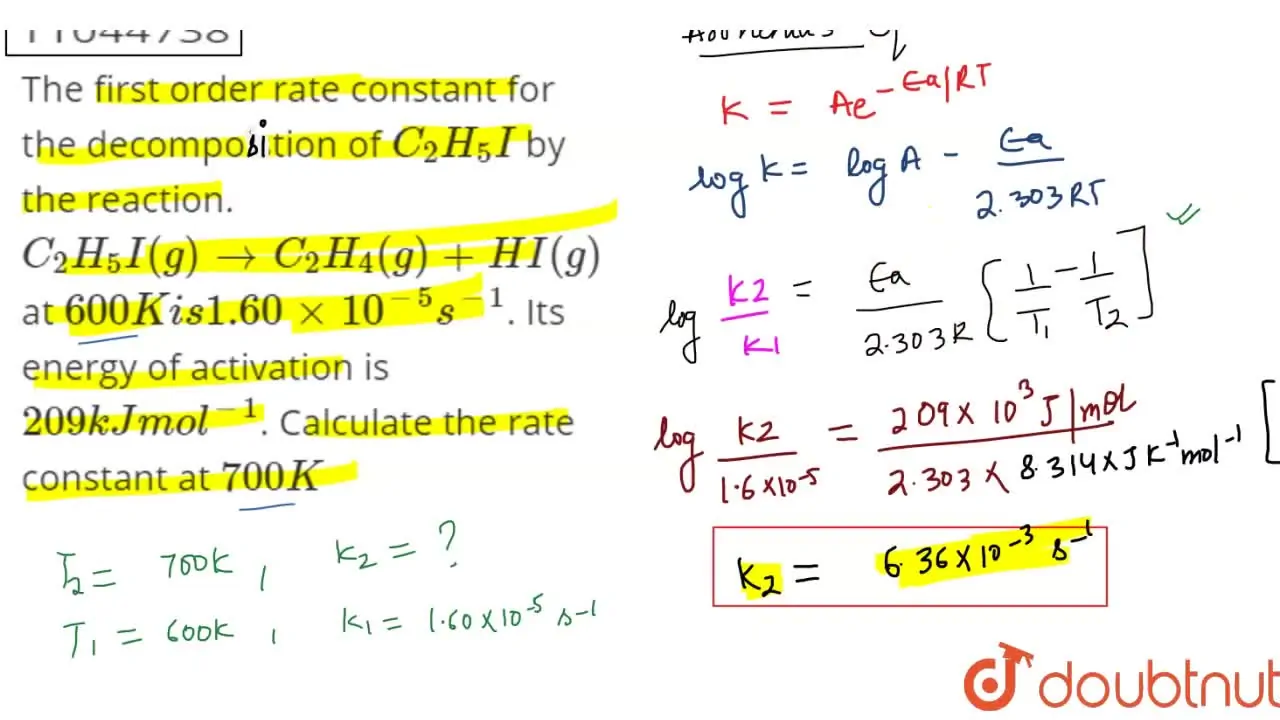 11044738
The first order rate constant for
the decomposition of C₂H₅I by
the reaction.
C₂H₅I(g) → C₂H₄(g) + HI(g)
at 600Kis1.60 × 10⁻⁵s⁻¹. Its
energy of activation is
209kJmol⁻¹. Calculate the rate
constant at 700K
T₂ = 700K , K₂ = ?
T₁ = 600K , K₁ = 1.60 × 10⁻⁵ s⁻¹
K = Ae⁻ᴱᵃ/ᴿᵀ
log K = log A - Ea / 2.303RT
log K2/K1 = Ea / 2.303R [1/T₁ - 1/T₂]
log K2 / 1.6×10⁻⁵ = 209 × 10³ J/mol / 2.303 × 8.314 × J K⁻¹ mol⁻¹ [
K₂ = 6.36 × 10⁻³ s⁻¹
doubtnut